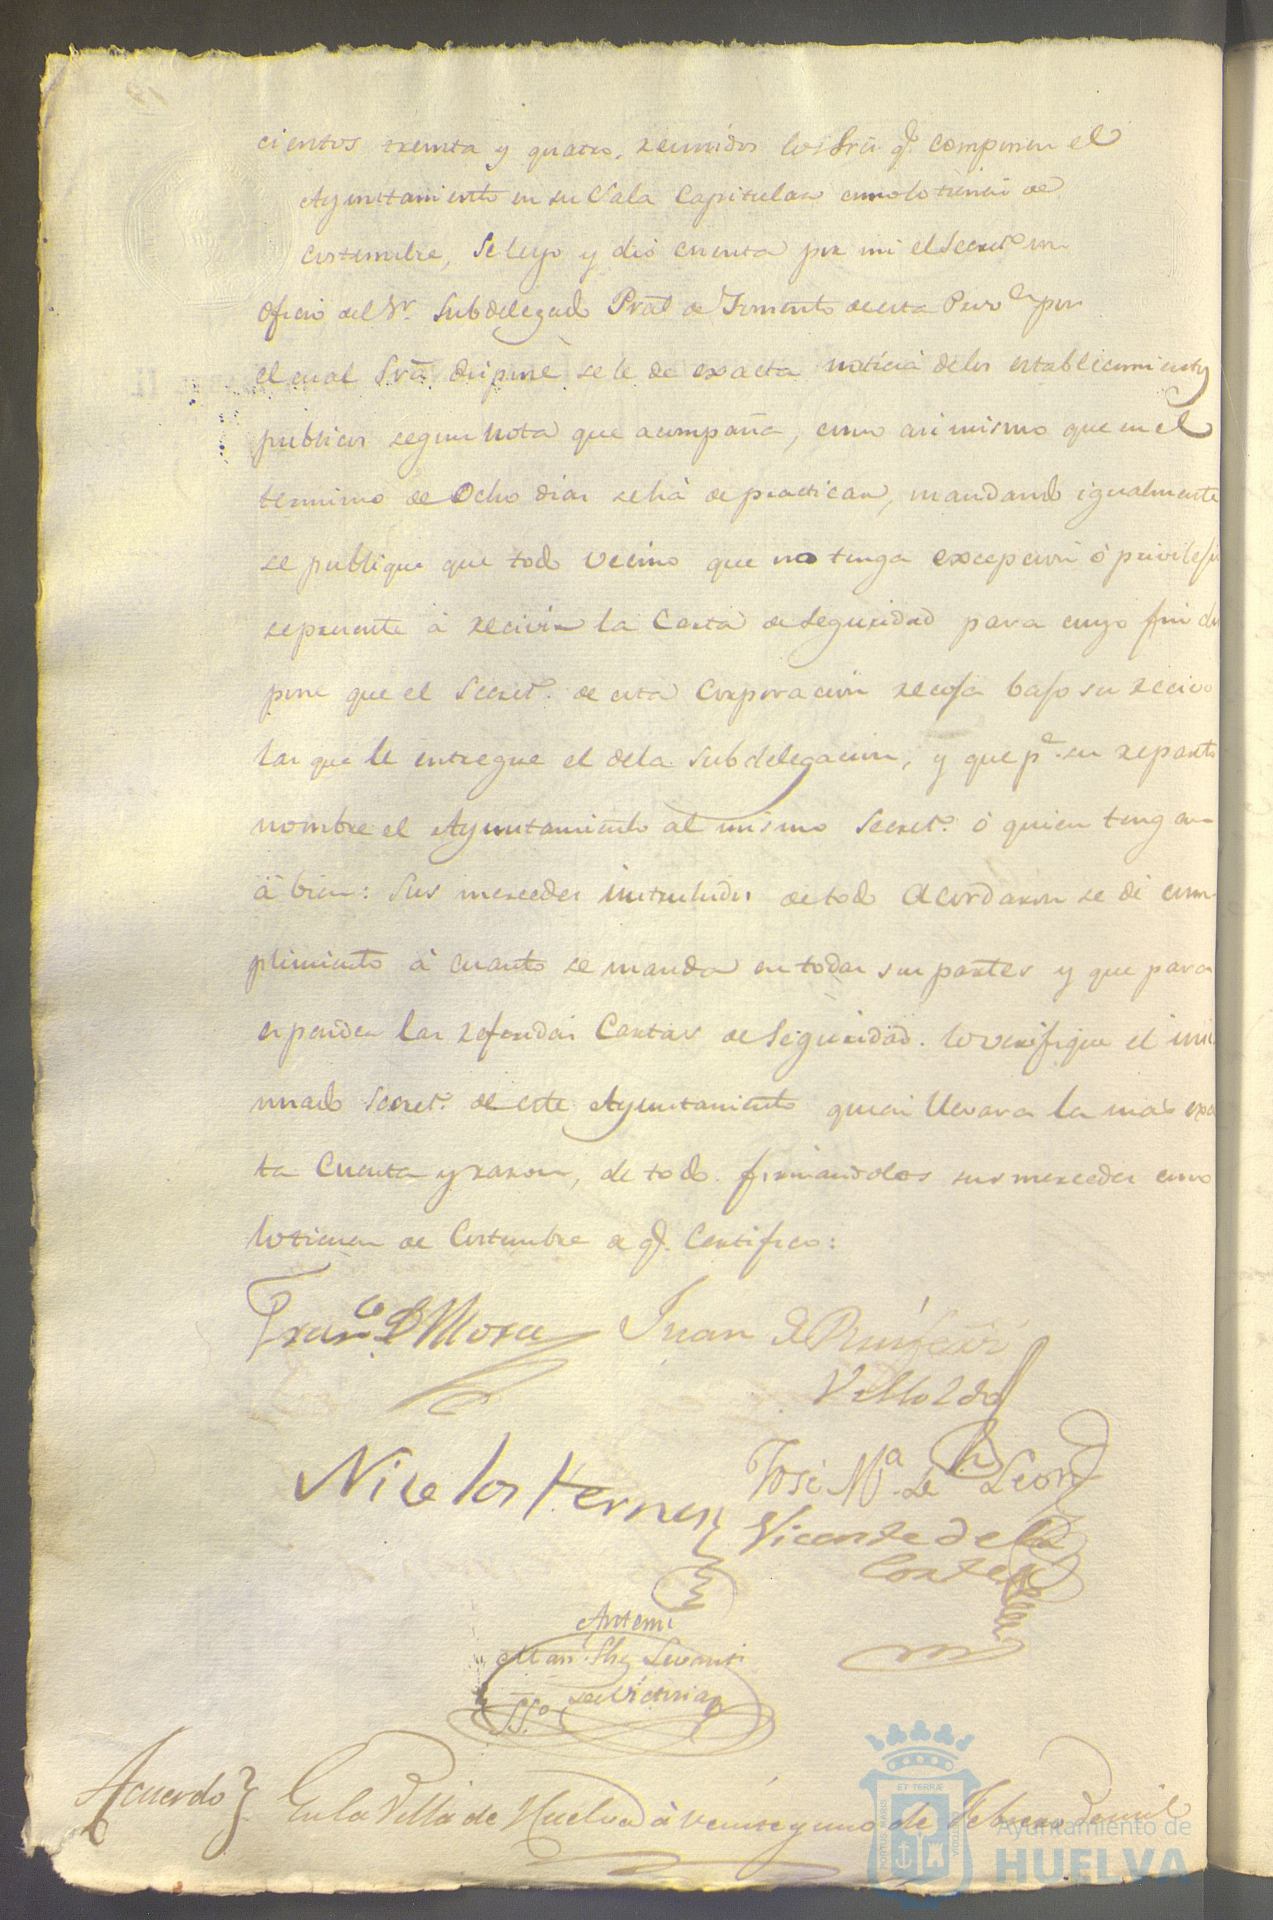 cientos treinta y quatro, reunidos los Sres. q. componen el
Ayuntamiento en su Sala Capitular como lo tienen de
costumbre, se leyo y dió cuenta por mi el Secret.º un
Oficio del Sr. Subdelegado Pral de Fomento de esta Prov.ª por
el cual Sria. dispone se le de exacta noticia de los establecimientos
publicos segun nota que acompaña, como asi mismo que en el
termino de Ocho dias se há de practicar, mandando igualmente
se publique que todo vecino que no tenga excepcion ó privilejio
se presente á recivir la Carta de Seguridad para cuyo fin dis
pone que el Secret.º de esta Corporacion recoja bajo su recivo
las que le entregue el de la Subdelegacion, y que p.ª su reparto
nombre el Ayuntamiento al mismo Secret.º ó quien tengan
á bien: Sus mercedes instruidos de todo Acordaron se dé cum
plimiento á cuanto se manda en todas sus partes y que para
espender las referidas Cartas de Seguridad lo verifique el
Secret.º de este Ayuntamiento quien llevara la mas exac
ta Cuenta y razon, de todo firmandolos sus mercedes como
lo tienen de Costumbre de q. Certifico:
Fran.co D Mora Juan
Nicolas Hernz
José M.ª de Leon
Vicente de la
Cortes
Antemi
de Victoria
SS.º
Acuerdo En la Villa de Huelva á veinte y uno de Febrero de mil
ET TERRAE
Ayuntamiento de
HUELVA